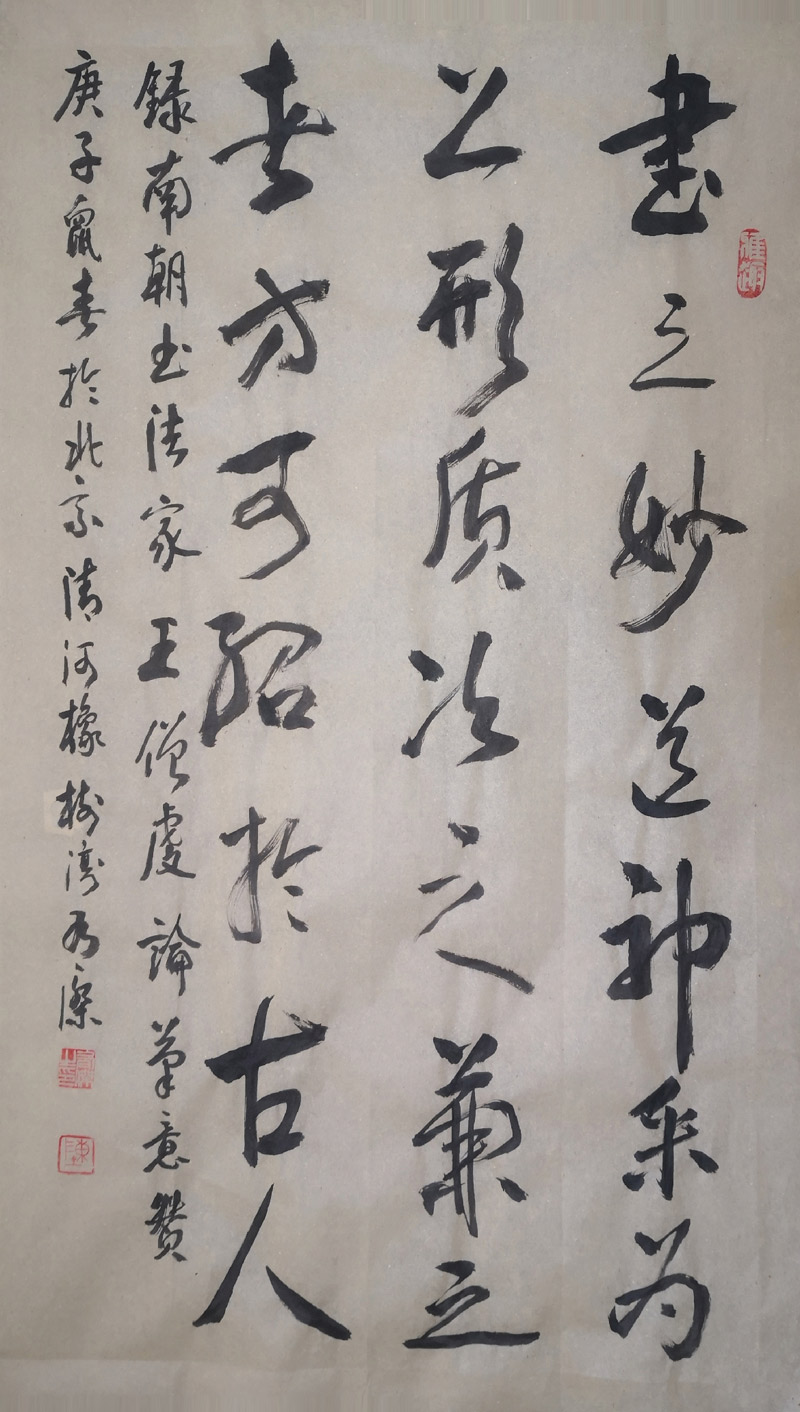 書之妙道神采为
上形质次之兼之
者方可紹於古人
録南朝书法家王僧虔論筆意贊
庚子鼠春於北京清河橡树湾